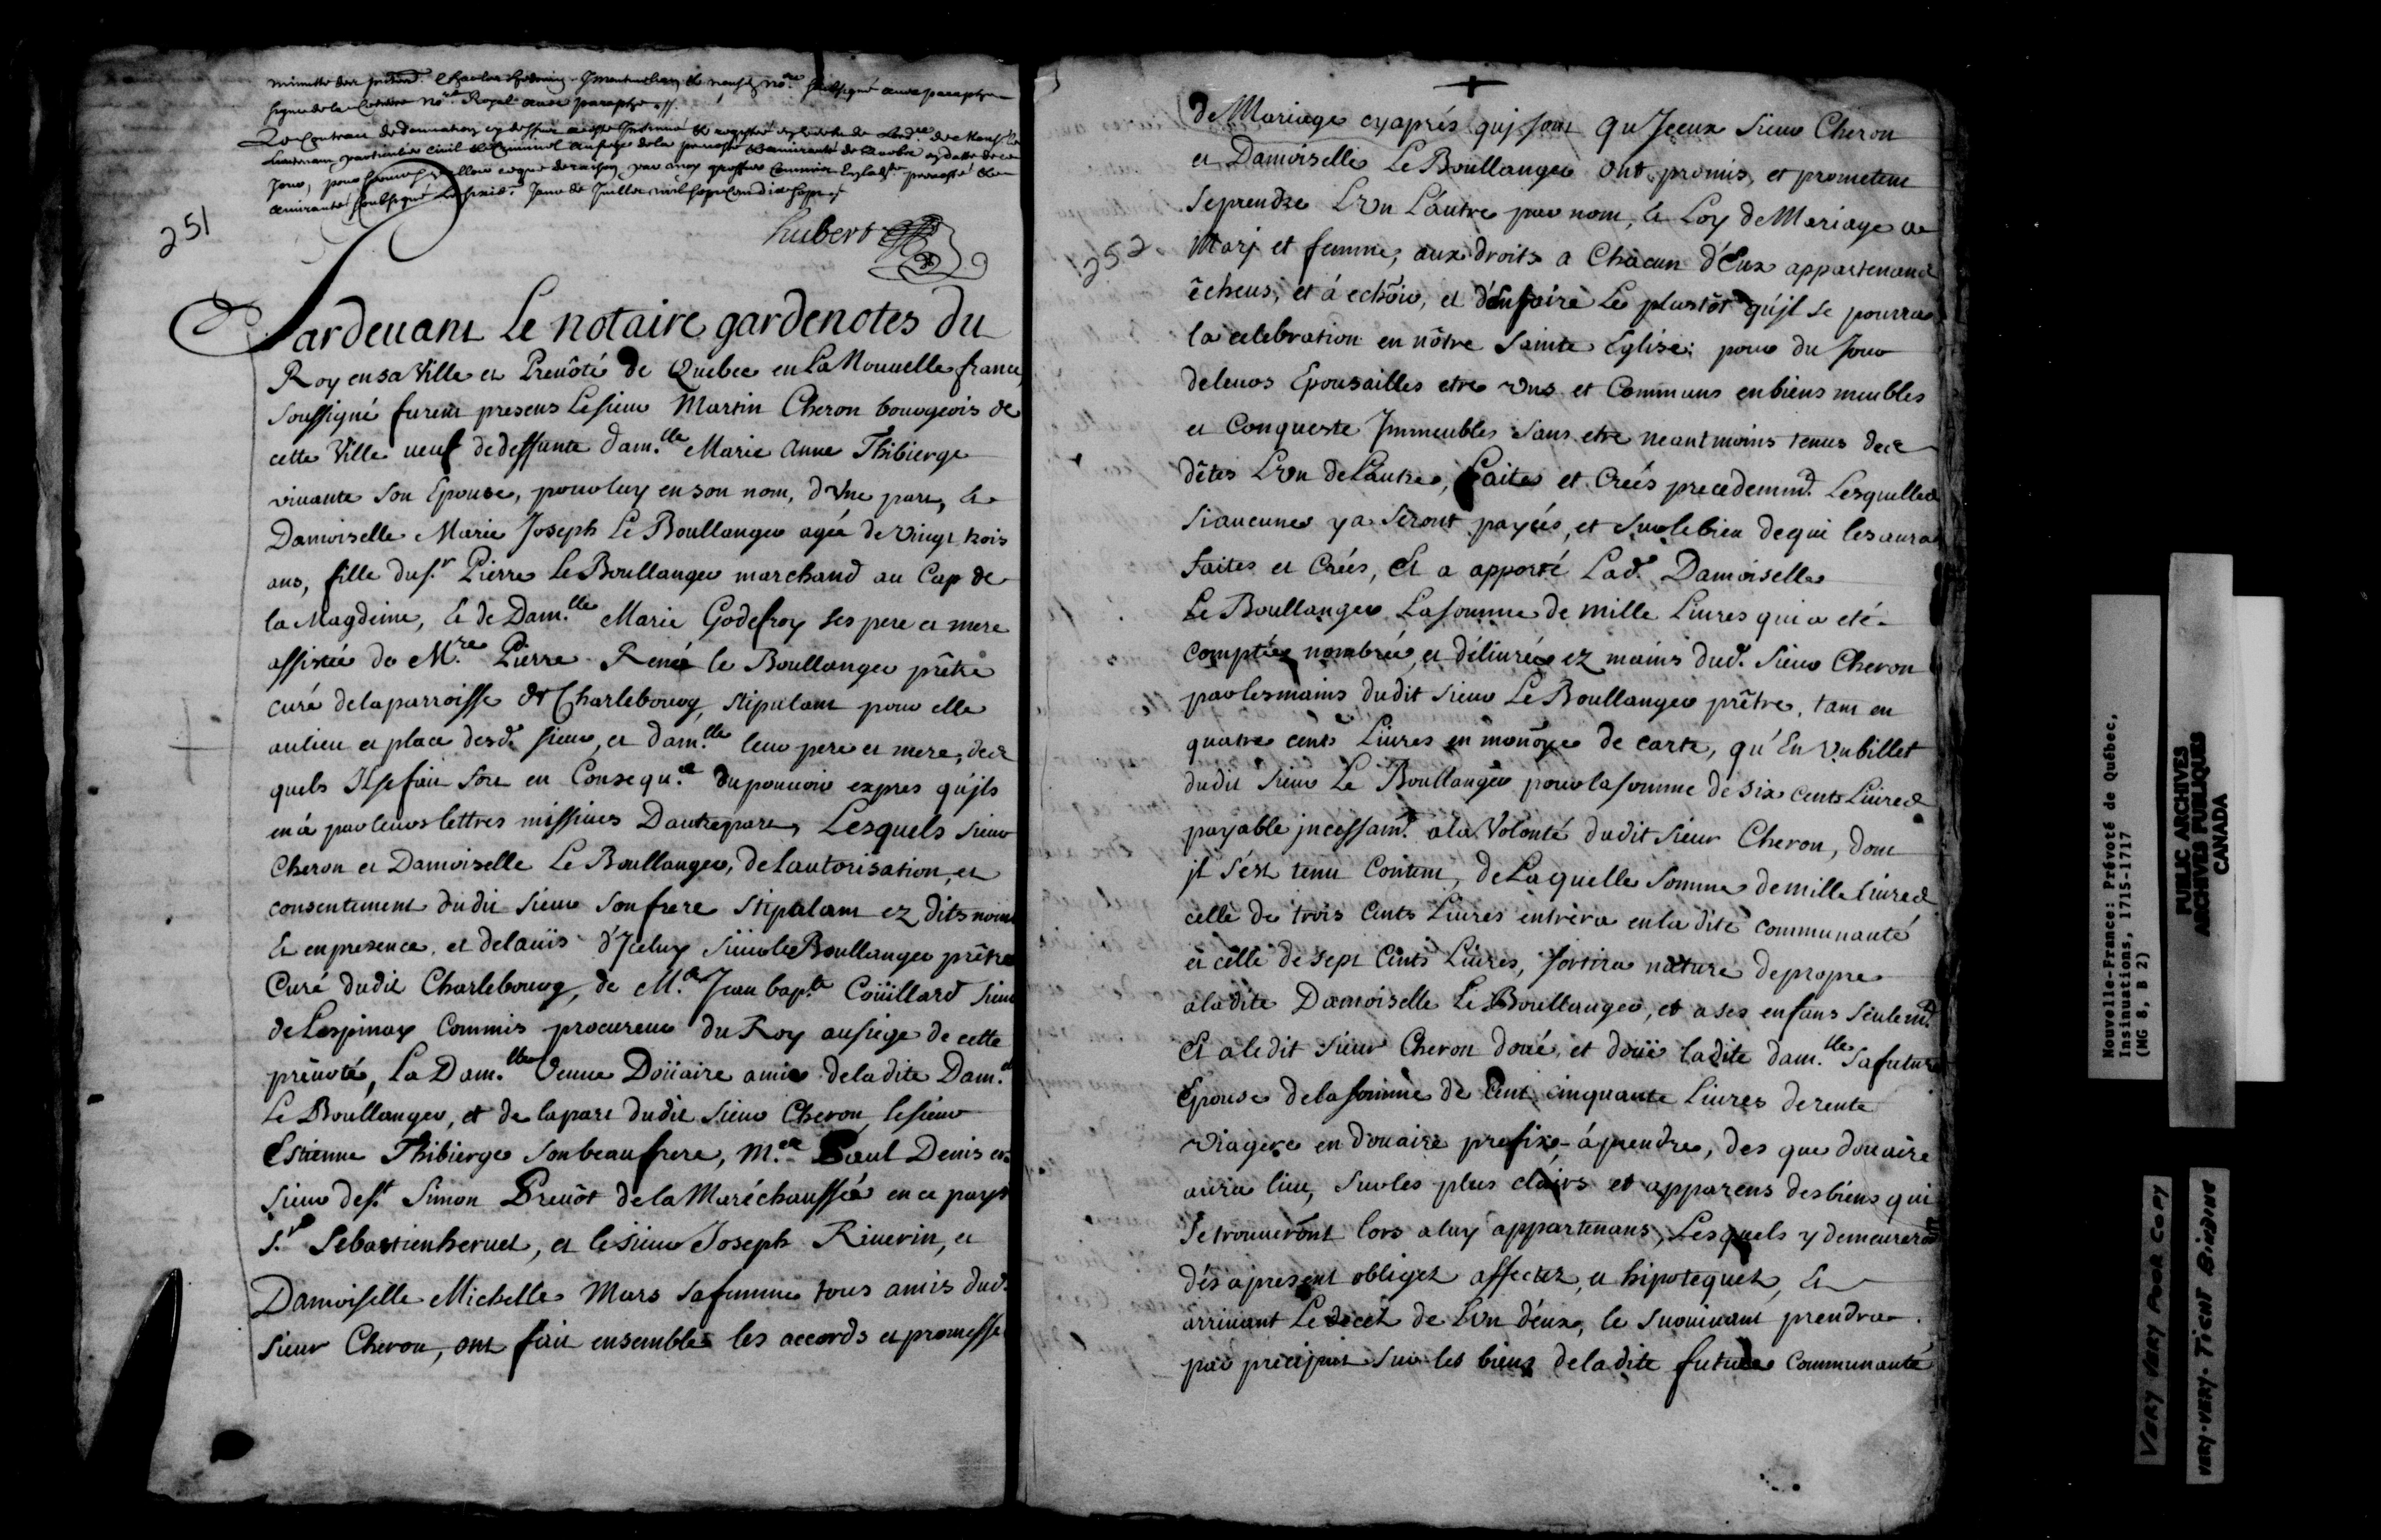 minutte des presentes
signé de la Cetiere no.re Royal avec paraphe
Le Contrac de donnation cy dessus a esté Insinué et registré
Lieutenant particulier civil et Criminel au siege de la prevosté et amirauté de
jour, pour servir et valloir ce que de raison, par moy greffier Commis En lad.te prevosté et
amirauté soubsigné Le jour de Juillet mil sept cent dix sept
hubert
251
Pardeuant Le notaire gardenotes du
Roy en sa Ville et Preuôté de Quebec en La Nouuelle france,
soussigné furent presens Le sieur Martin Cheron bourgeois de
cette Ville ueuf de deffunte dam.lle Marie Anne Thibierge
viuante son Epouse, pour luy en son nom, d'vne part, Et
Damoiselle Marie Joseph Le Boullanger agée de vingt trois
ans, fille du s.r Pierre Le Boullanger marchand au Cap de
la Magdeine, Et de Dam.lle Marie Godefroy ses pere et mere
assistée de M.re Pierre René le Boullanger prêtre
curé de la parroisse de Charlebourg, stipulant pour elle
au lieu et place desd. sieur, et dam.lle leur pere et mere, des
quels Il se fait fort en Consequ.ce du pouuoir expres qu'jls
en à par leurs lettres missiues D'autre part, Lesquels sieur
Cheron et Damoiselle Le Boullanger, de l'autorisation, et
consentement dudit sieur son frere stipulant ez dits noms
Et en presence, et de l'auis d'Jceluy sieur le Boullanger prêtre
Curé dudit Charlebourg, de M.e Jean bap.te Coüillard sieur
de Lespinay Commis procureur du Roy au siege de cette
prêuoté, La Dam.lle Veuue Doüaire amie de la dite Dam.lle
Le Boullanger, et de la part dudit sieur Cheron, le sieur
Estienne Thibierge son beau frere, M.re Paul Denis
sieur de s.t Simon Preuôt de la Maréchaussée en ce pays
S.r Sebastien heruet, et le sieur Joseph Riuerin, et
Damoiselle Michelle Mars sa femme tous amis dud.
sieur Cheron, ont fait ensemble les accords et promesse
252
de Mariage cy aprés quj sont Qu'Jceux sieur Cheron
et Damoiselle Le Boullanger ont promis, et prometent
se prendre L'vn L'autre par nom, et Loy de Mariage a
Marj et femme, aux droits a Chacun d'Eux appartenans
êcheus, et á echöir, et d'en faire Le plustôt qu'jl se pourra
la celebration en nôtre Sainte Eglise; pour du jour
de leurs Epousailles etre vns et Communs en biens meubles
et Conqueste Jmmeubles sans etre neantmoins tenus des
dêtes L'vn de L'autre, faites et Creés precedemm.t Lesquelles
si aucunes y a seront payées, et sur le bien de qui les aura
faites et Creés, Et a apporté Lad. Damoiselle
Le Boullanger La somme de mille Liures qui a eté
comptée nombrée, et déliurée ez mains dud. Sieur Cheron
par les mains dudit sieur Le Boullanger prêtre, tant en
quatre cents Liures en monöye de carte, qu'En vn billet
dudit sieur Le Boullanger pour la somme de six cents Liures
payable jncessam.t a la Volonté dudit sieur Cheron, dont
jl s'est tenu Content, de Laquelle somme de mille Liures
celle de trois Cents Liures entrera en la dite communauté
et celle de sept Cents Liures, sortira nature de propre
a la dite Damoiselle Le Boullanger, et a ses enfans seulem.t
Et a le dit sieur Cheron doüé, et doüe la dite dam.lle sa future
Epouse de la somme de Cent cinquante Liures de rente
viagere en doüaire prefixe à prendre, des que doüaire
aura lieu, sur les plus clairs et apparens des biens qui
se trouueront lors a luy appartenans, Lesquels y demeureront
dés a present obligez affectez, et hipotequez, Et
arriuant Le decés de L'vn d'eux, le suruiuant prendra
par preciput sur les biens de la dite future Communauté
Nouvelle-France: Prévoté de Québec,
Insinuations, 1715-1717
(MG 8, B 2)
PUBLIC ARCHIVES
ARCHIVES PUBLIQUES
CANADA
VERY VERY POOR COPY
VERY-VERY-TIGHT BINDING